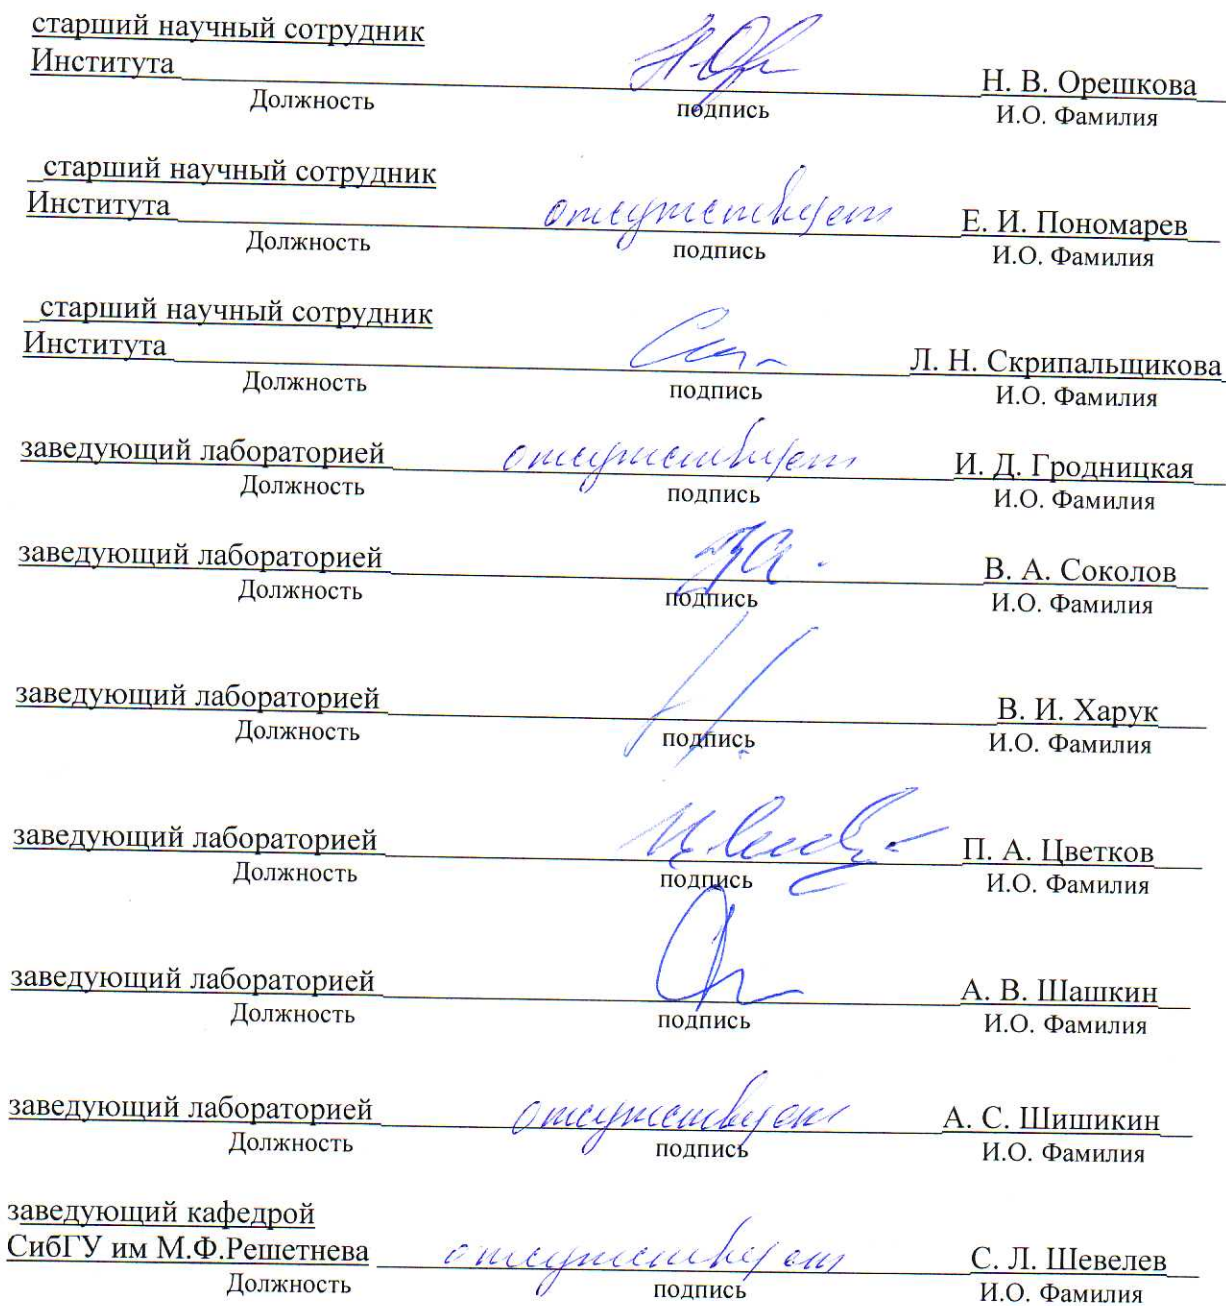 старший научный сотрудник
Института Н. В. Орешкова
Должность подпись И.О. Фамилия
старший научный сотрудник
Института отсутствует Е. И. Пономарев
Должность подпись И.О. Фамилия
старший научный сотрудник
Института Л. Н. Скрипальщикова
Должность подпись И.О. Фамилия
заведующий лабораторией отсутствует И. Д. Гродницкая
Должность подпись И.О. Фамилия
заведующий лабораторией В. А. Соколов
Должность подпись И.О. Фамилия
заведующий лабораторией В. И. Харук
Должность подпись И.О. Фамилия
заведующий лабораторией П. А. Цветков
Должность подпись И.О. Фамилия
заведующий лабораторией А. В. Шашкин
Должность подпись И.О. Фамилия
заведующий лабораторией отсутствует А. С. Шишикин
Должность подпись И.О. Фамилия
заведующий кафедрой
СибГУ им М.Ф.Решетнева отсутствует С. Л. Шевелев
Должность подпись И.О. Фамилия